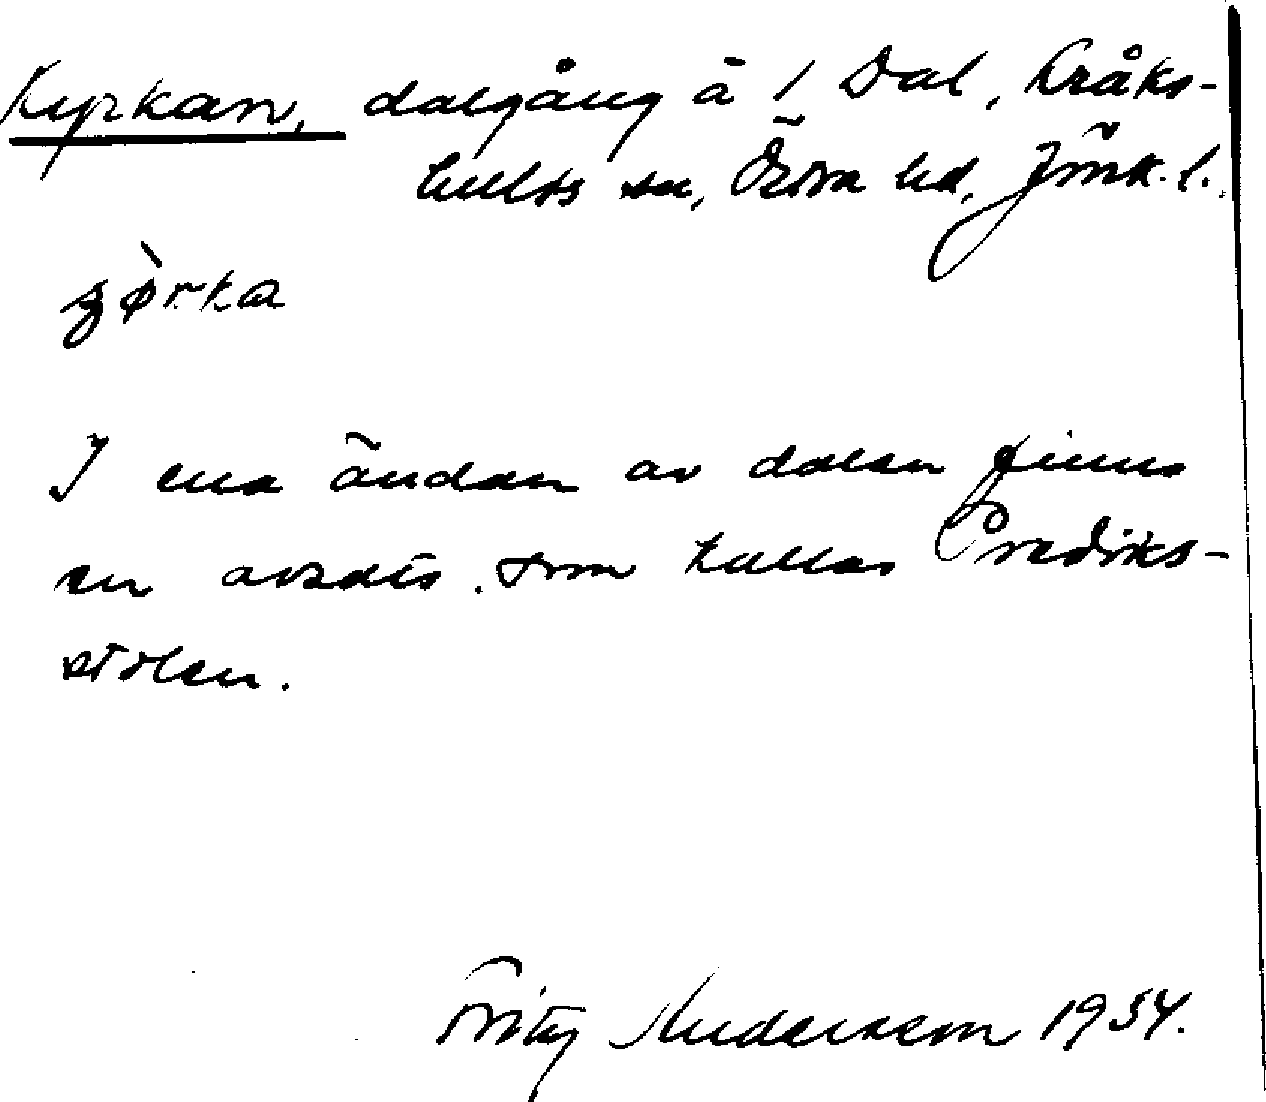 Kyrkan, dalgång å 1 Dal, Kråks-
hults sn, Östra hd, Jönk. l.
I ena ändan av dalen finns
en avsats. som kallas Prediks-
stolen.
Fritz Andersson 1934.